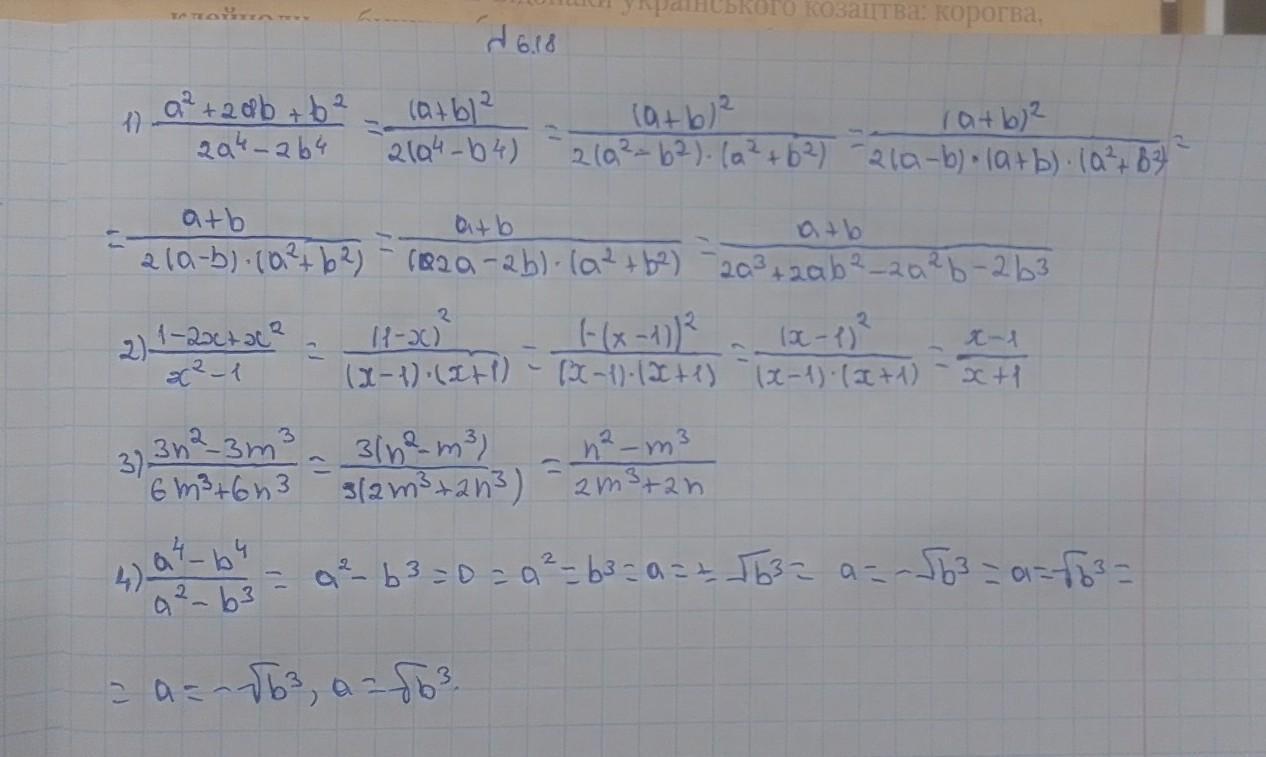 українського козацтва: корогва,
№ 6.18
1) (a²+2ab+b²)/(2a⁴-2b⁴) = (a+b)²/(2(a⁴-b⁴)) = (a+b)²/(2(a²-b²)·(a²+b²)) = (a+b)²/(2(a-b)·(a+b)·(a²+b²)) =
= (a+b)/(2(a-b)·(a²+b²)) = (a+b)/((2a-2b)·(a²+b²)) = (a+b)/(2a³+2ab²-2a²b-2b³)
2) (1-2x+x²)/(x²-1) = (1-x)²/((x-1)·(x+1)) = (-(x-1))²/((x-1)·(x+1)) = (x-1)²/((x-1)·(x+1)) = (x-1)/(x+1)
3) (3n²-3m³)/(6m³+6n³) = 3(n²-m³)/(3(2m³+2n³)) = (n²-m³)/(2m³+2n)
4) (a⁴-b⁴)/(a²-b³) = a²-b³=0 = a²=b³ = a=±√b³ = a=-√b³ = a=√b³ =
= a=-√b³, a=√b³.